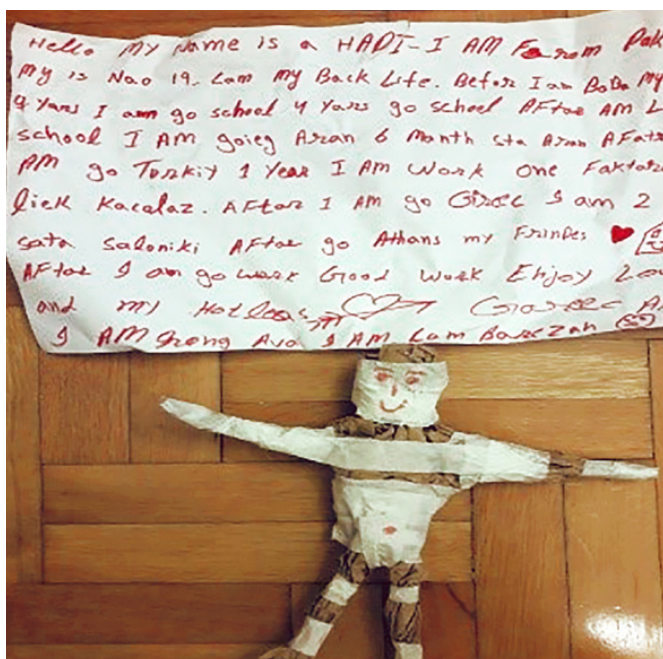 Hello My Name is a HADI - I AM Farom Pak
My is Nao 19. Cam my Back Life. Befor I am BoBa My
9 Yars I am go school 4 Yars go school AFtar AM L
school I AM goieg Aran 6 Month sta Aran AFatr
AM go Torkiy 1 Year I AM Work one Faktar
liek Kacalaz. AFtar I am go Greec I am 2
sata Saloniki AFtar go Athans my Frindes
AFtar I am go work Good Work Enjoy Lo
and my Hotloas Gareec A
I AM I AM Cam